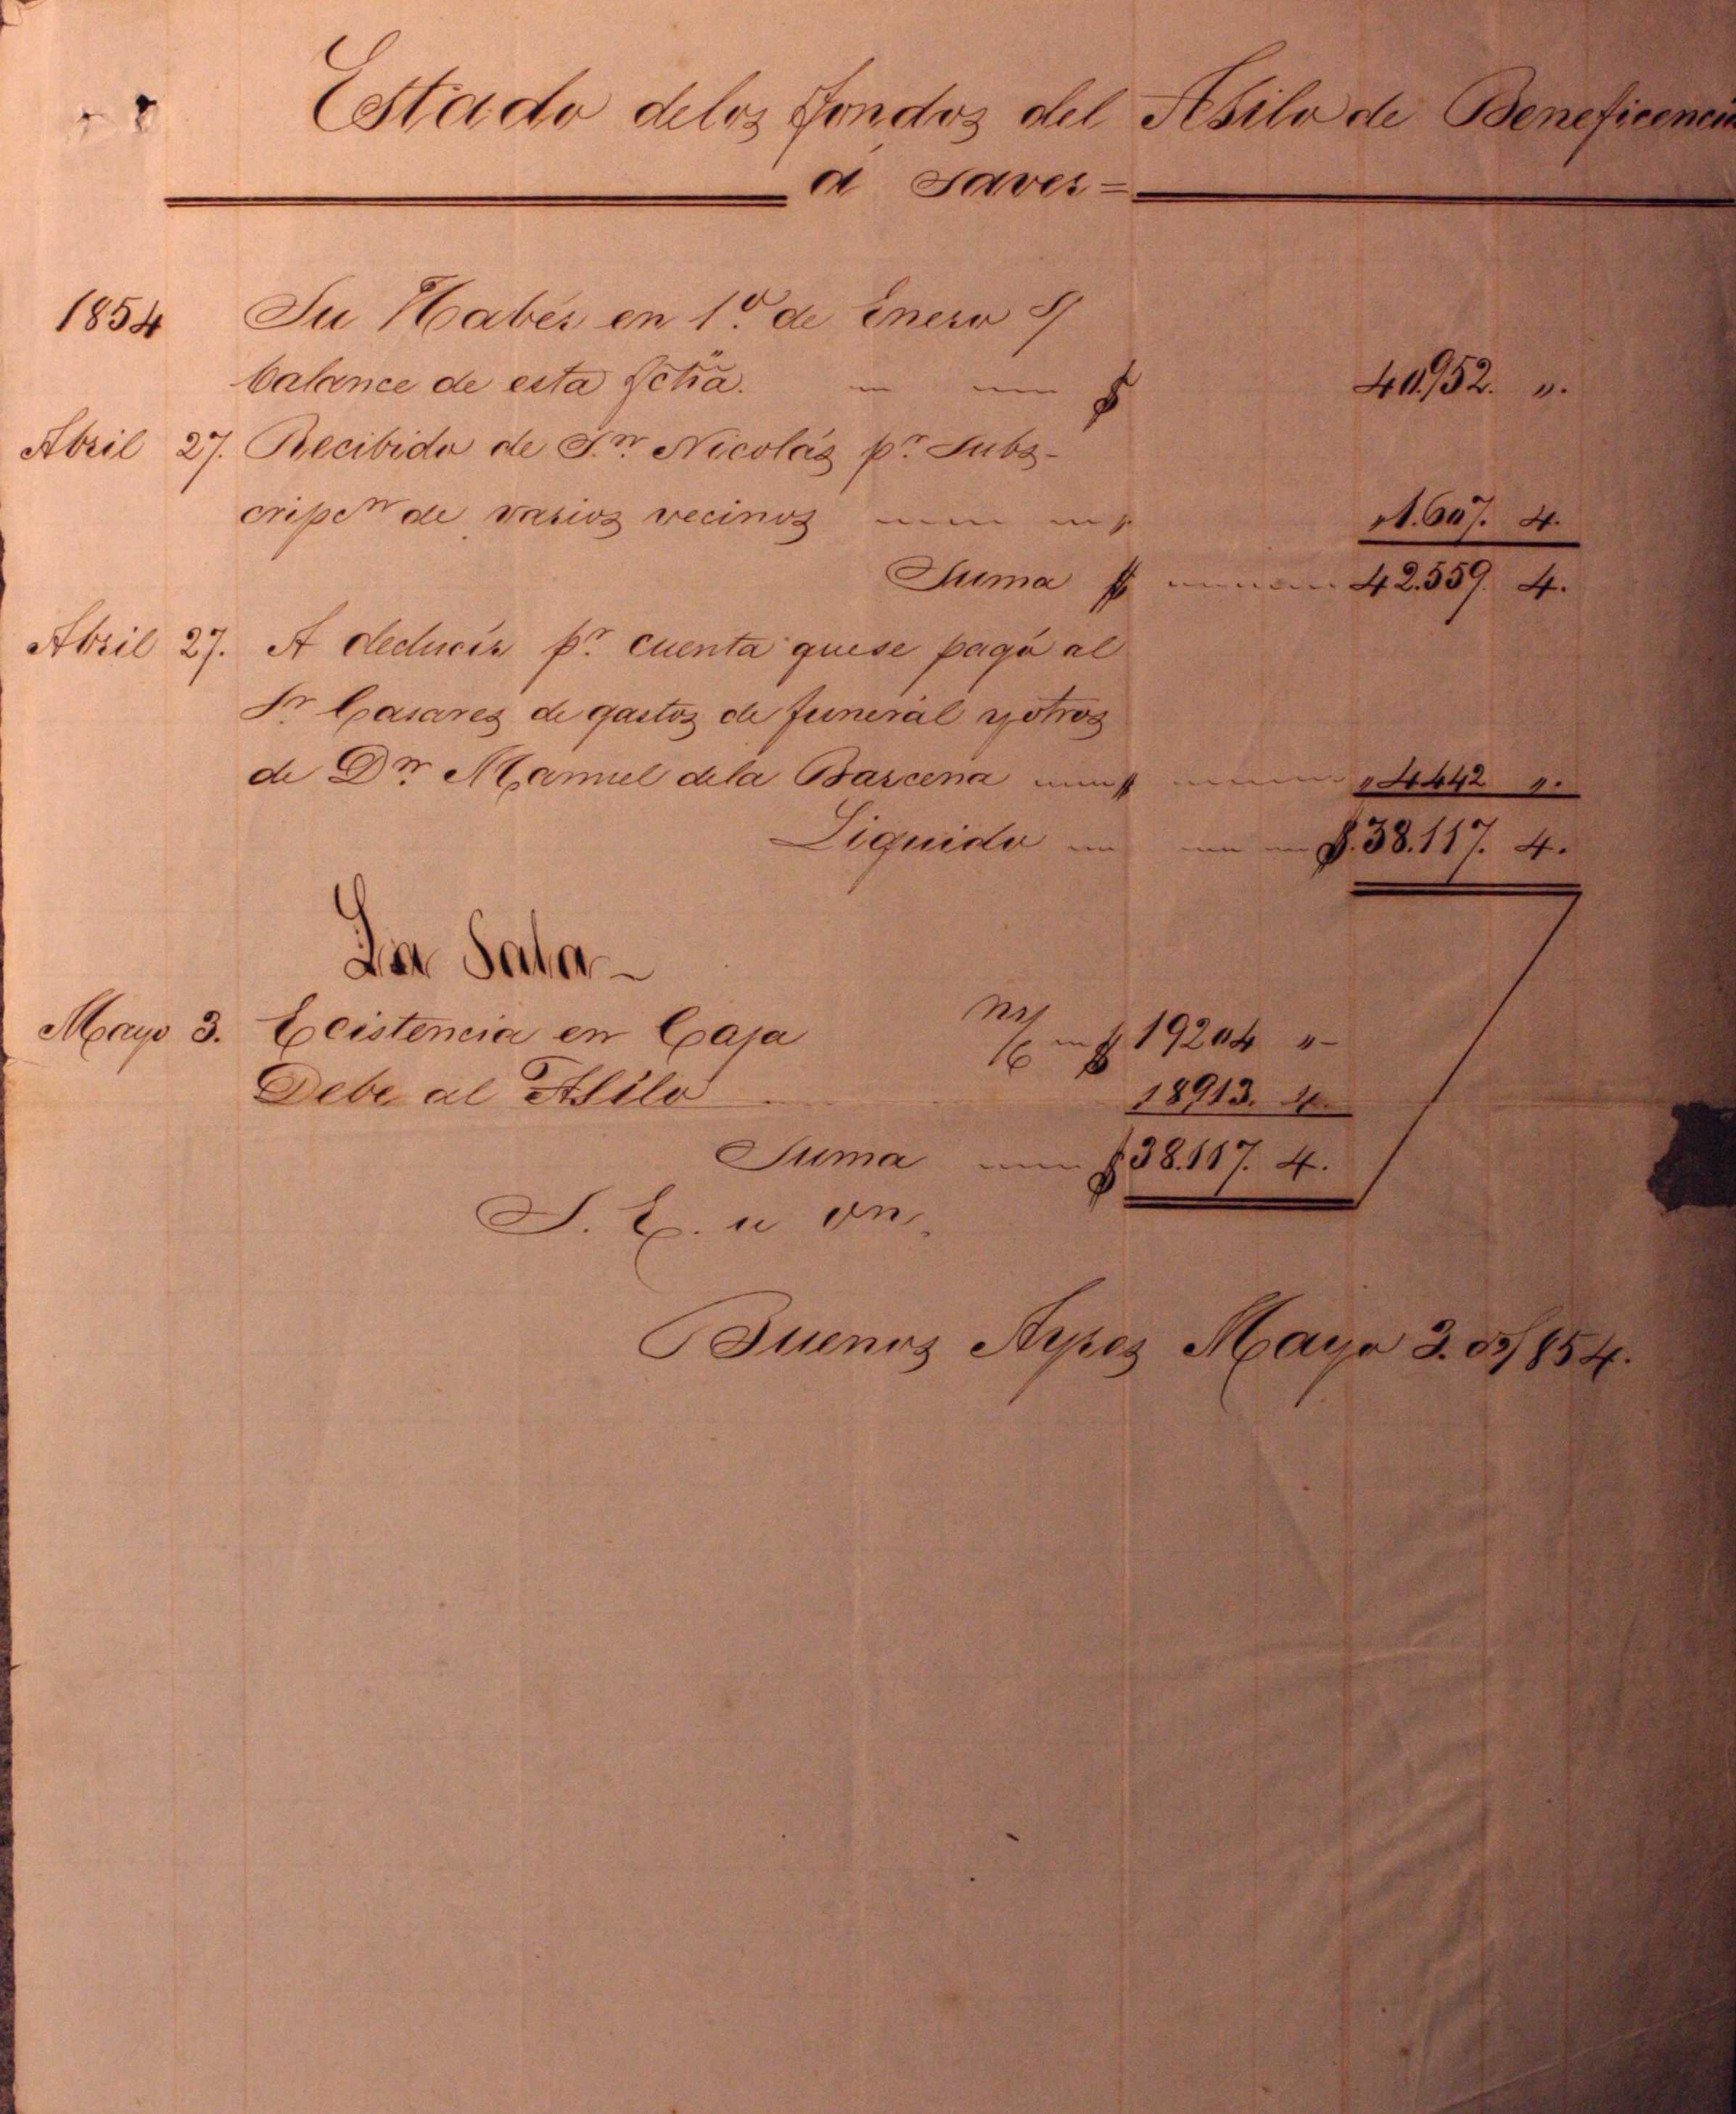 Estado delos fondos del Asilo de Beneficencia
á saver =
1854 Su Habér en 1º de Enero S/
balance de esta fcha. $ 40.952. ".
Abril 27. Recibido de Sn. Nicolás pr. Subs-
cripcn de varios vecinos " 1.607. 4.
Suma $ 42.559. 4.
Abril 27. A deducir pr. cuenta quese pagó al
Sr Casares de gastos de funeral yotros
de Dn. Manuel dela Barcena " 4442 ".
Liquido $. 38.117. 4.
La Sala-
Mayo 3. Ecistencia en Caja m/c $ 19204 "-
Debe al Asilo 18913. 4.
Suma $ 38.117. 4.
S. E. u on.
Buenos Ayres Mayo 3. de/854.